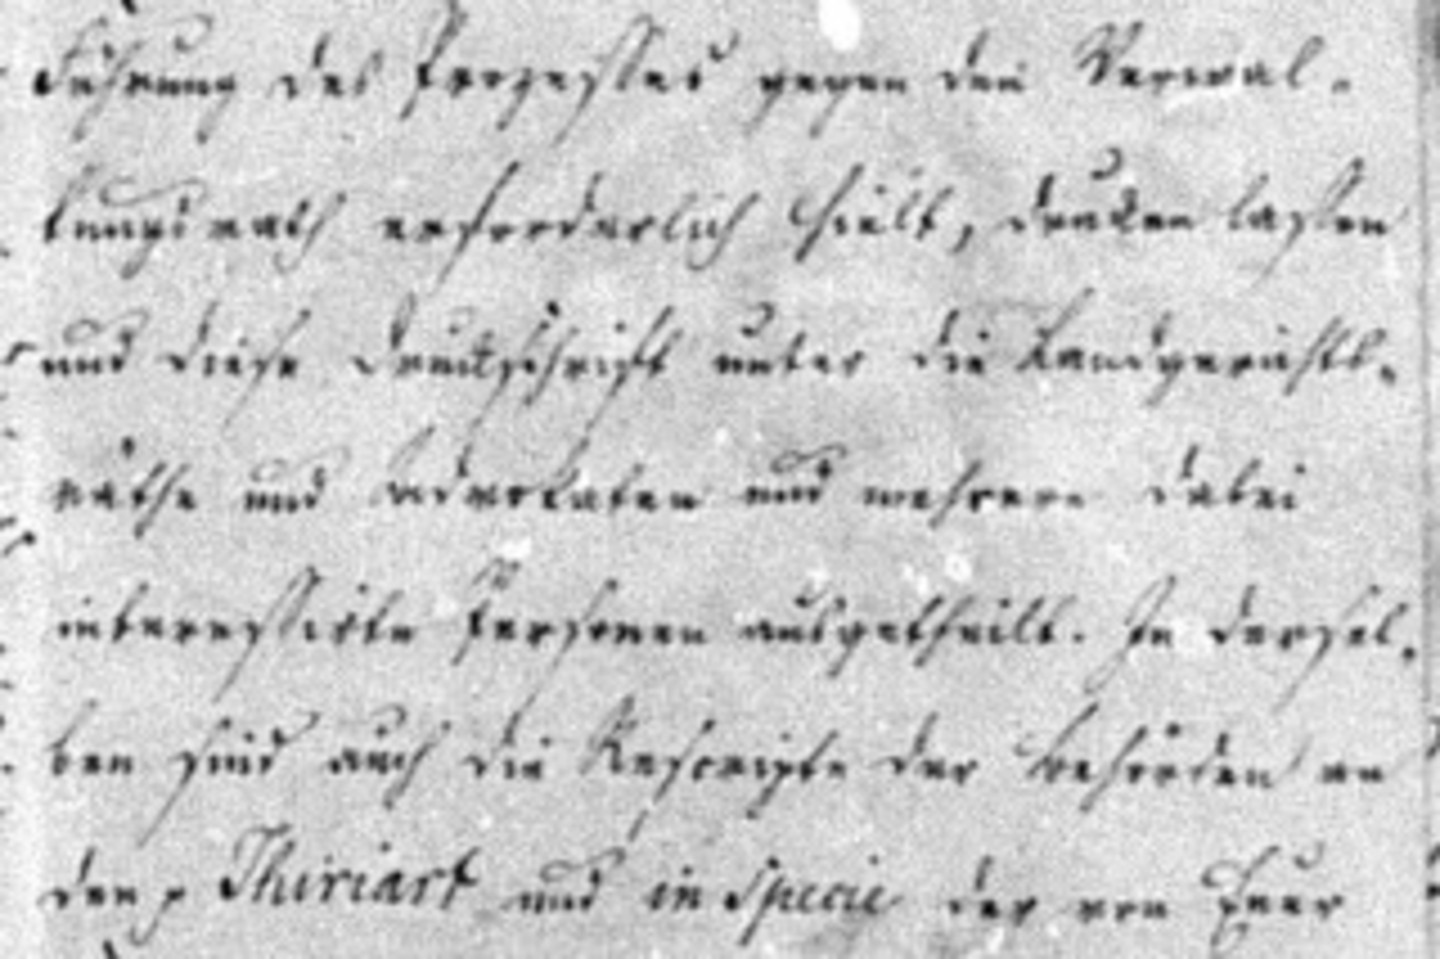 Führung des Prozesses gegen den Verwal-
tungsrath erforderlich hielt, drucken lassen
und diese Druckschrift unter die Landgerichts-
räthe und Advokaten und mehrere dabei
interessirte Personen ausgetheilt. In dersel-
ben sind auch die Rescripte der Behörden an
den p Thiriart und in specie der von Euer